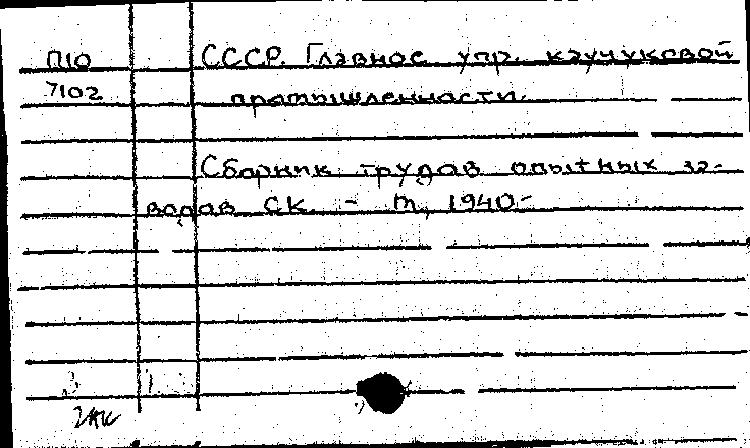 П10 СССР. Главное упр. каучуковой
7102 промышленности.
Сборник трудов опытных за-
водов СК. - М, 1940.-